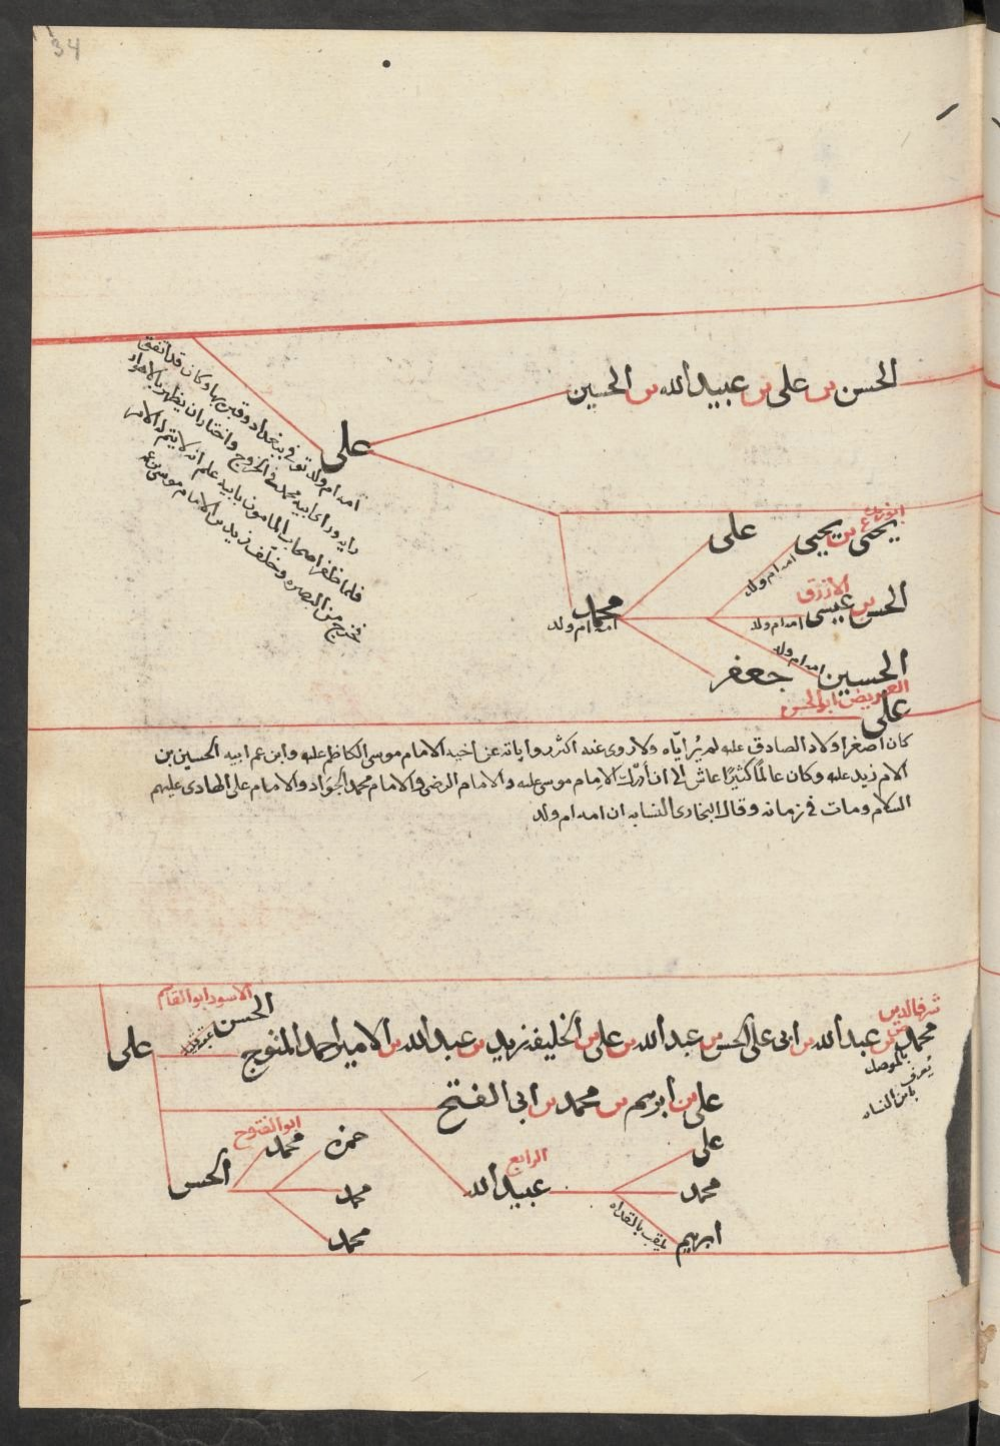 34
الحسن بن علي بن عبيد الله بن الحسين
علي
امه ام ولد توفي ببغداد وقبره بها وكان قد اتفق
راي ابيه محمد في الخروج واختار ان يظهر بالاهواز
فلما ظفر اصحاب المامون بابيه علم انه لا يتم له الامر
فخرج من البصرة وخلف زيد بن الامام موسى
علي
يحيى بن يحيى
امه ام ولد
محمد
امه ام ولد
الازرق
الحسن بن عيسى
امه ام ولد
الحسين
امه ام ولد
جعفر
العريضي ابو الحسن
علي
كان اصغر اولاد الصادق عليه لم ير اياه ولا روى عنه اكثر رواياته عن اخيه الامام موسى الكاظم عليه وابن عم ابيه الحسين بن
الامام زيد عليه وكان عالما كثيرا عاش الى ان ادرك الامام موسى عليه والامام الرضى والامام محمد الجواد والامام علي الهادى عليهم
السلام ومات في زمانه وقال البخارى النسابه ان امه ام ولد
الاسود ابو القاسم
الحسن
شرف الدين
محمد بن عبد الله بن ابي علي الحسن بن عبد الله بن علي بن الخليفة زيد بن عبد الله بن الامير احمد المنوج
علي
بالموصل
يعرف
بابن النساء
علي بن ابرهيم بن محمد بن ابي الفتح
ابو الفتوح
محمد
حمزه
علي
الحسن
محمد
الرابع
عبيد الله
محمد
محمد
ابرهيم